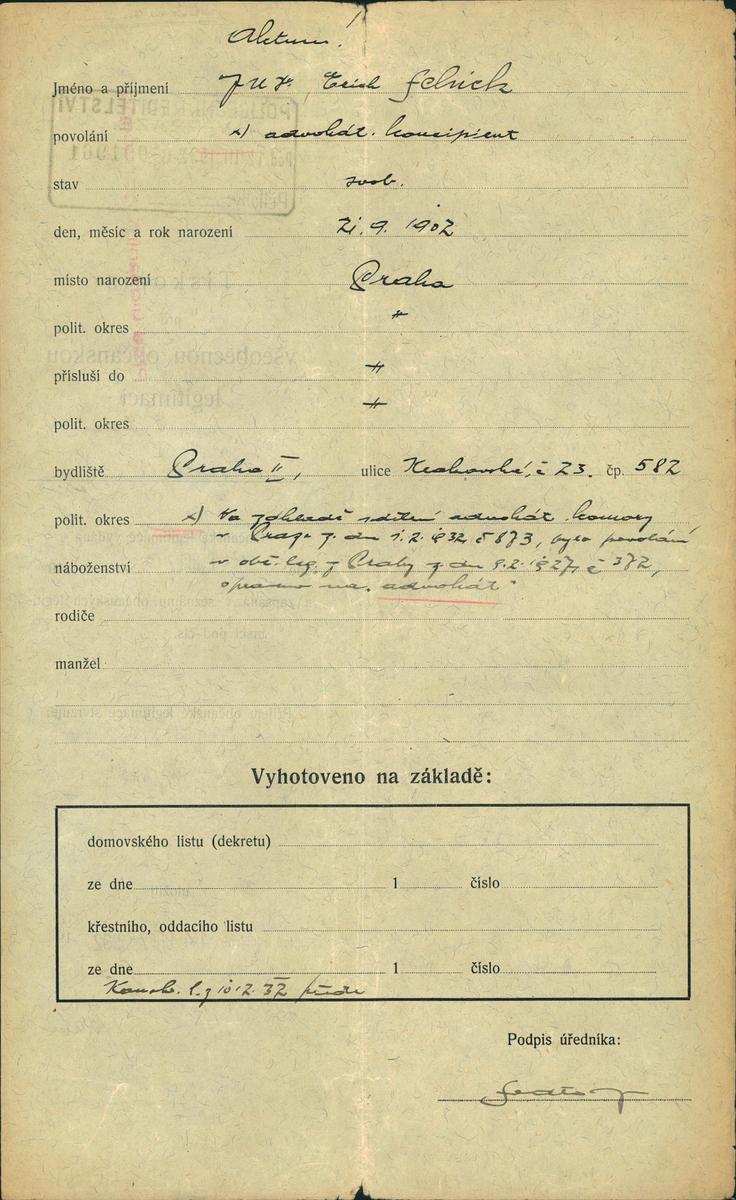 Jméno a příjmení JUDr. Erich
povolání x) advokát. koncipient
stav svob.
den, měsíc a rok narození 21. 9. 1902
místo narození Praha
polit. okres "
přísluší do "
polit. okres "
bydliště Praha II, ulice Krakovská, č 23. čp. 582
polit. okres x) Na základě sdělení advokát. komory
v Praze z. dn 1. 2. 1932 č 873, bylo povolání
náboženství v obč. leg. z Prahy z. dn 9. 2. 1927, č 372,
opraveno na „advokát"
rodiče
manžel
Vyhotoveno na základě:
domovského listu (dekretu)
ze dne 1 číslo
křestního, oddacího listu
ze dne 1 číslo
Podpis úředníka: